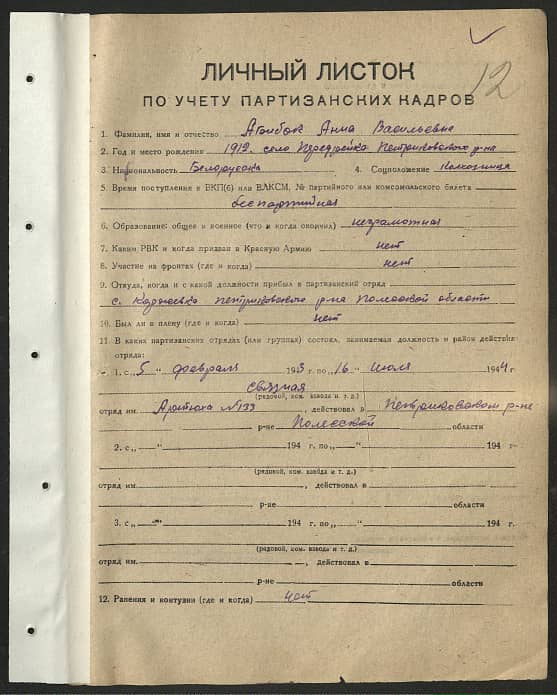 12
ЛИЧНЫЙ ЛИСТОК
ПО УЧЕТУ ПАРТИЗАНСКИХ КАДРОВ
1. Фамилия, имя и отчество Анна Васильевна
2. Год и место рождения 1912. село Петриковского р-на
3. Национальность Белоруска 4. Соцположение колхозница
5. Время поступления в ВКП(б) или ВЛКСМ, № партийного или комсомольского билета
беспартийная
6. Образование: общее и военное (что и когда окончил) неграмотная
7. Каким РВК и когда призван в Красную Армию нет
8. Участие на фронтах (где и когда) нет
9. Откуда, когда и с какой должности прибыл в партизанский отряд
с. Петриковского р-на Полесской области
10. Был ли в плену (где и когда) нет
11. В каких партизанских отрядах (или группах) состоял, занимаемая должность и район действия
отряда:
1. с „5" февраля 1943 г. по „16" июля 1944 г.
связная
(рядовой, ком. взвода и т. д.)
отряд им. №133, действовал в Петриковском р-не
р-не Полесской области
2. с „ " 194 г. по „ " 194 г.
(рядовой, ком. взвода и т. д.)
отряд им. , действовал в
р-не области
3. с „ " 194 г. по „ " 194 г.
(рядовой, ком. взвода и т. д.)
отряд им. , действовал в
р-не области
12. Ранения и контузии (где и когда) нет